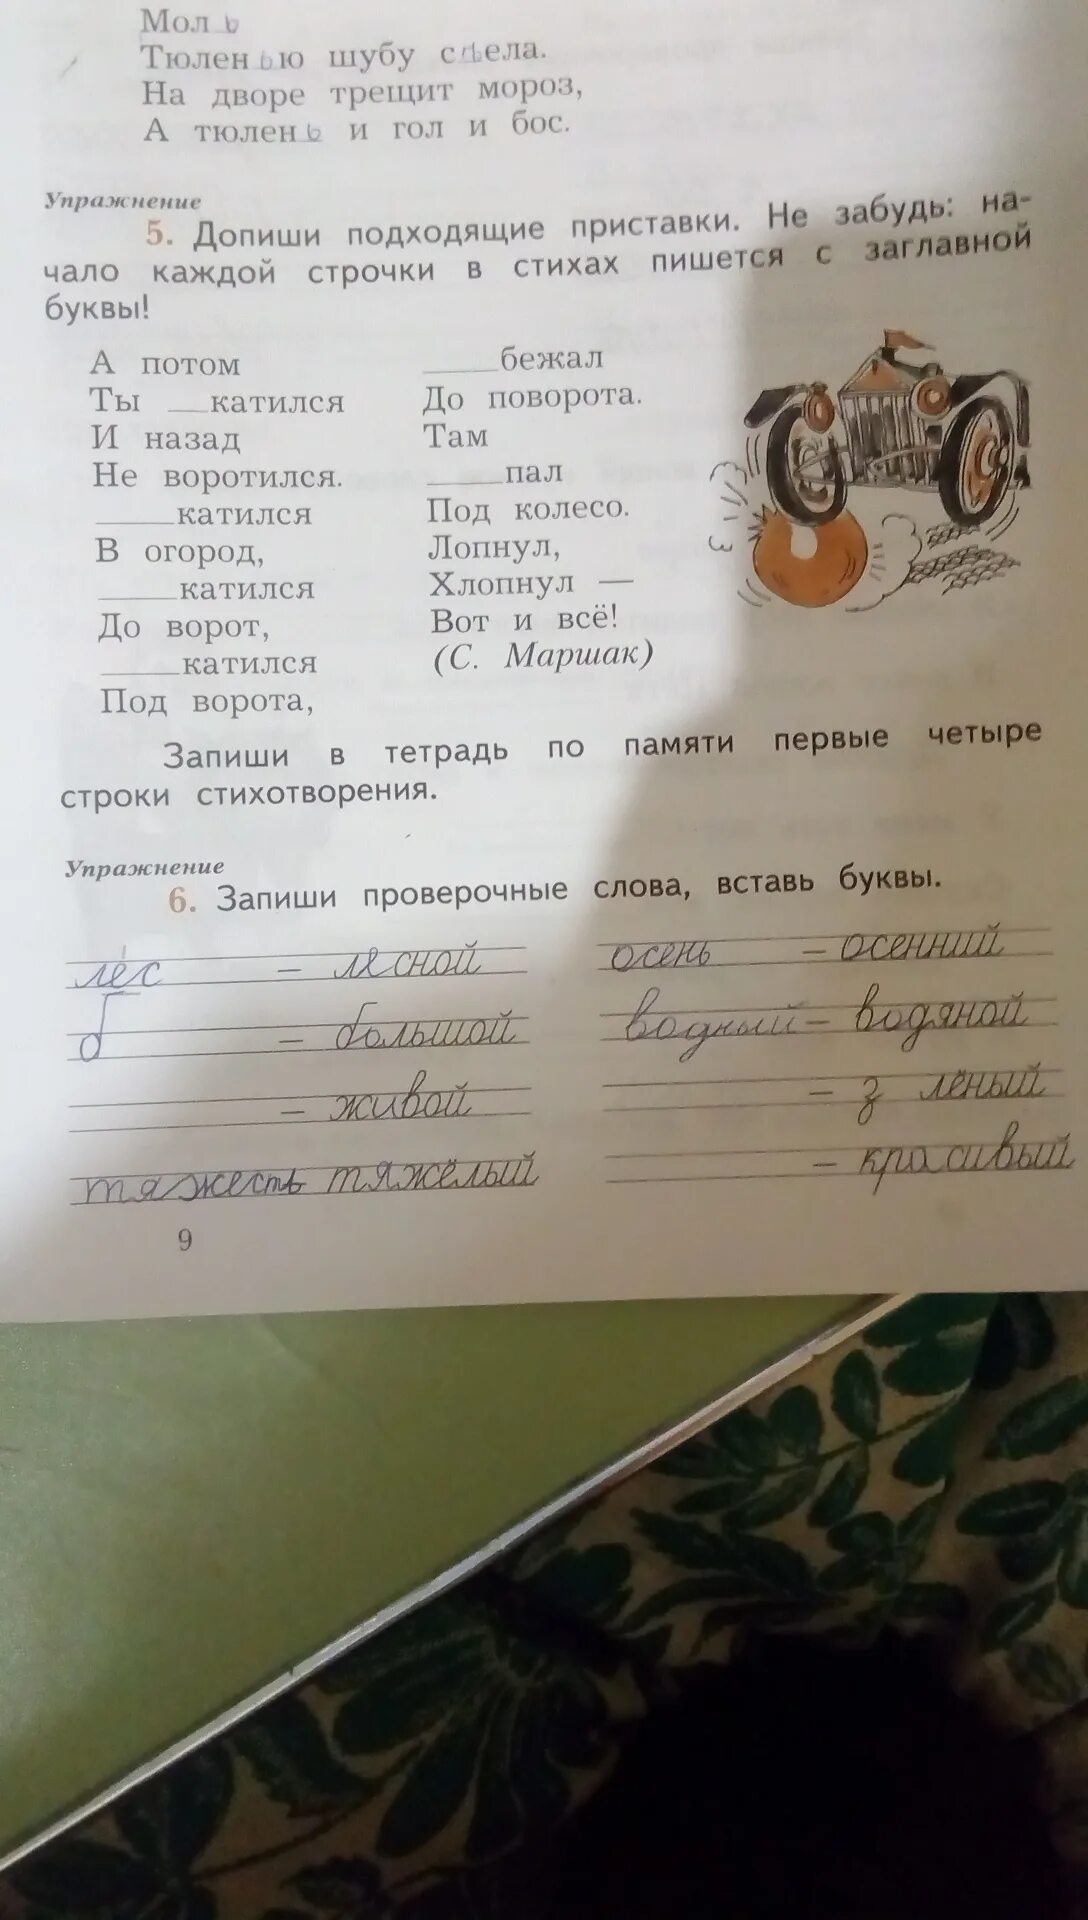 Моль
Тюленью шубу съела.
На дворе трещит мороз,
А тюлень и гол и бос.
Упражнение
5. Допиши подходящие приставки. Не забудь: на-
чало каждой строчки в стихах пишется с заглавной
буквы!
А потом
Ты ___катился
И назад
Не воротился.
_____катился
В огород,
_____катился
До ворот,
_____катился
Под ворота,
_____бежал
До поворота.
Там
_____пал
Под колесо.
Лопнул,
Хлопнул —
Вот и всё!
(С. Маршак)
Запиши в тетрадь по памяти первые четыре
строки стихотворения.
Упражнение
6. Запиши проверочные слова, вставь буквы.
лес – лесной осень – осенний
б – большой водный – водяной
– живой – з лёный
тяжесть тяжёлый – красивый
9